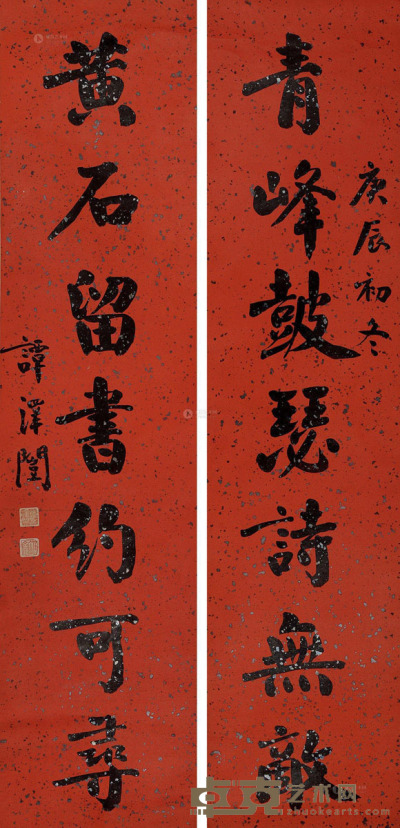 青峰鼓瑟詩無敵
庚辰初冬
黃石留書約可尋
譚澤闓
艺术网
zhuokearts.com